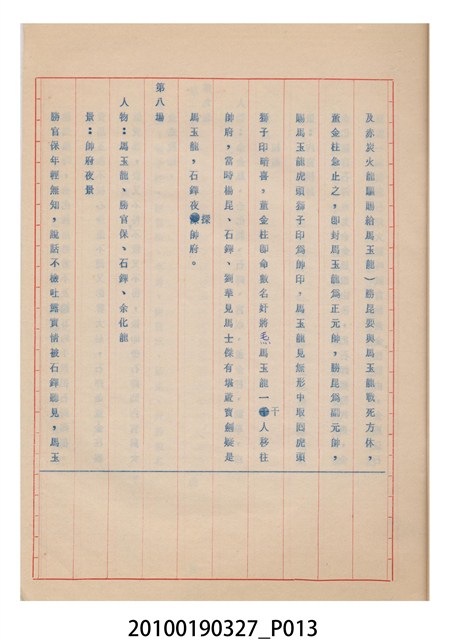 及赤炭火龍駒賜給馬玉龍）勝昆要與馬玉龍戰死方休，
董金柱急止之，即封馬玉龍為正元帥，勝昆為副元帥，
賜馬玉龍虎頭獅子印為帥印，馬玉龍見無形中取囘虎頭
獅子印暗喜，董金柱即命數名奸將馬玉龍一干人移往
帥府，當時楊昆、石鐸、劉華見馬士傑有湛盧寶劍疑是
馬玉龍，石鐸夜探帥府。
第八場
人物：馬玉龍、勝官保、石鐸、余化龍
景：帥府夜景
勝官保年輕無知，說話不檢吐露實情被石鐸聽見，馬玉
20100190327_P013